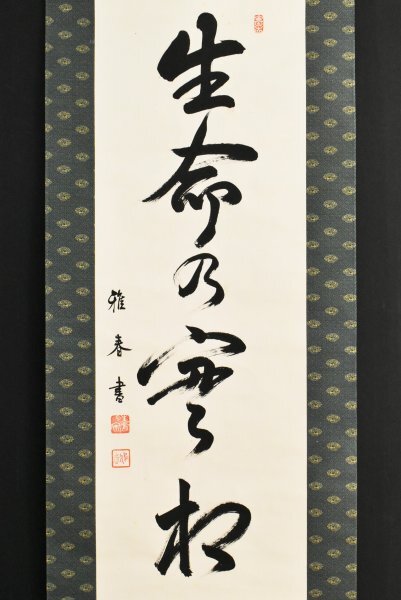 生命の實相
雅春書